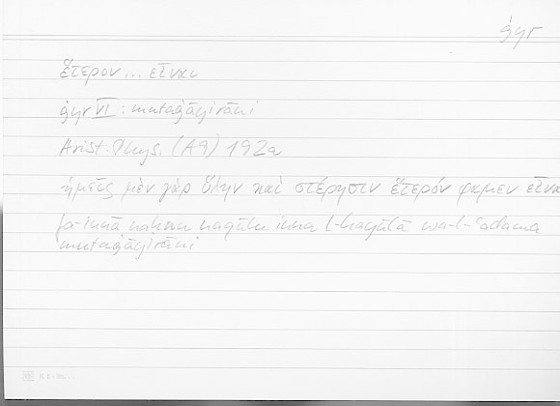 ġyr
ἕτερον... εἶναι
ġyr VI : mutaġāyirāni
Arist. Phys. (A9) 192a
ἡμεῖς μὲν γὰρ ὕλην καὶ στέρησιν ἕτερόν φαμεν εἶνα
fa-innā naḥnu naqūlu inna l-hayūlā wa-l-ʿadama
mutaġāyirāni